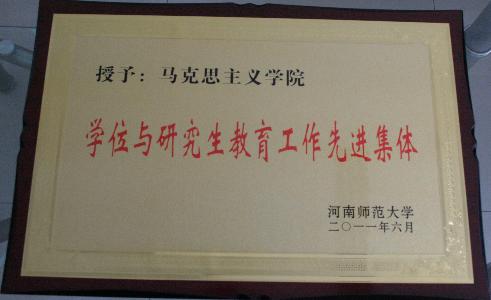 授予：马克思主义学院
学位与研究生教育工作先进集体
河南师范大学
二〇一一年六月